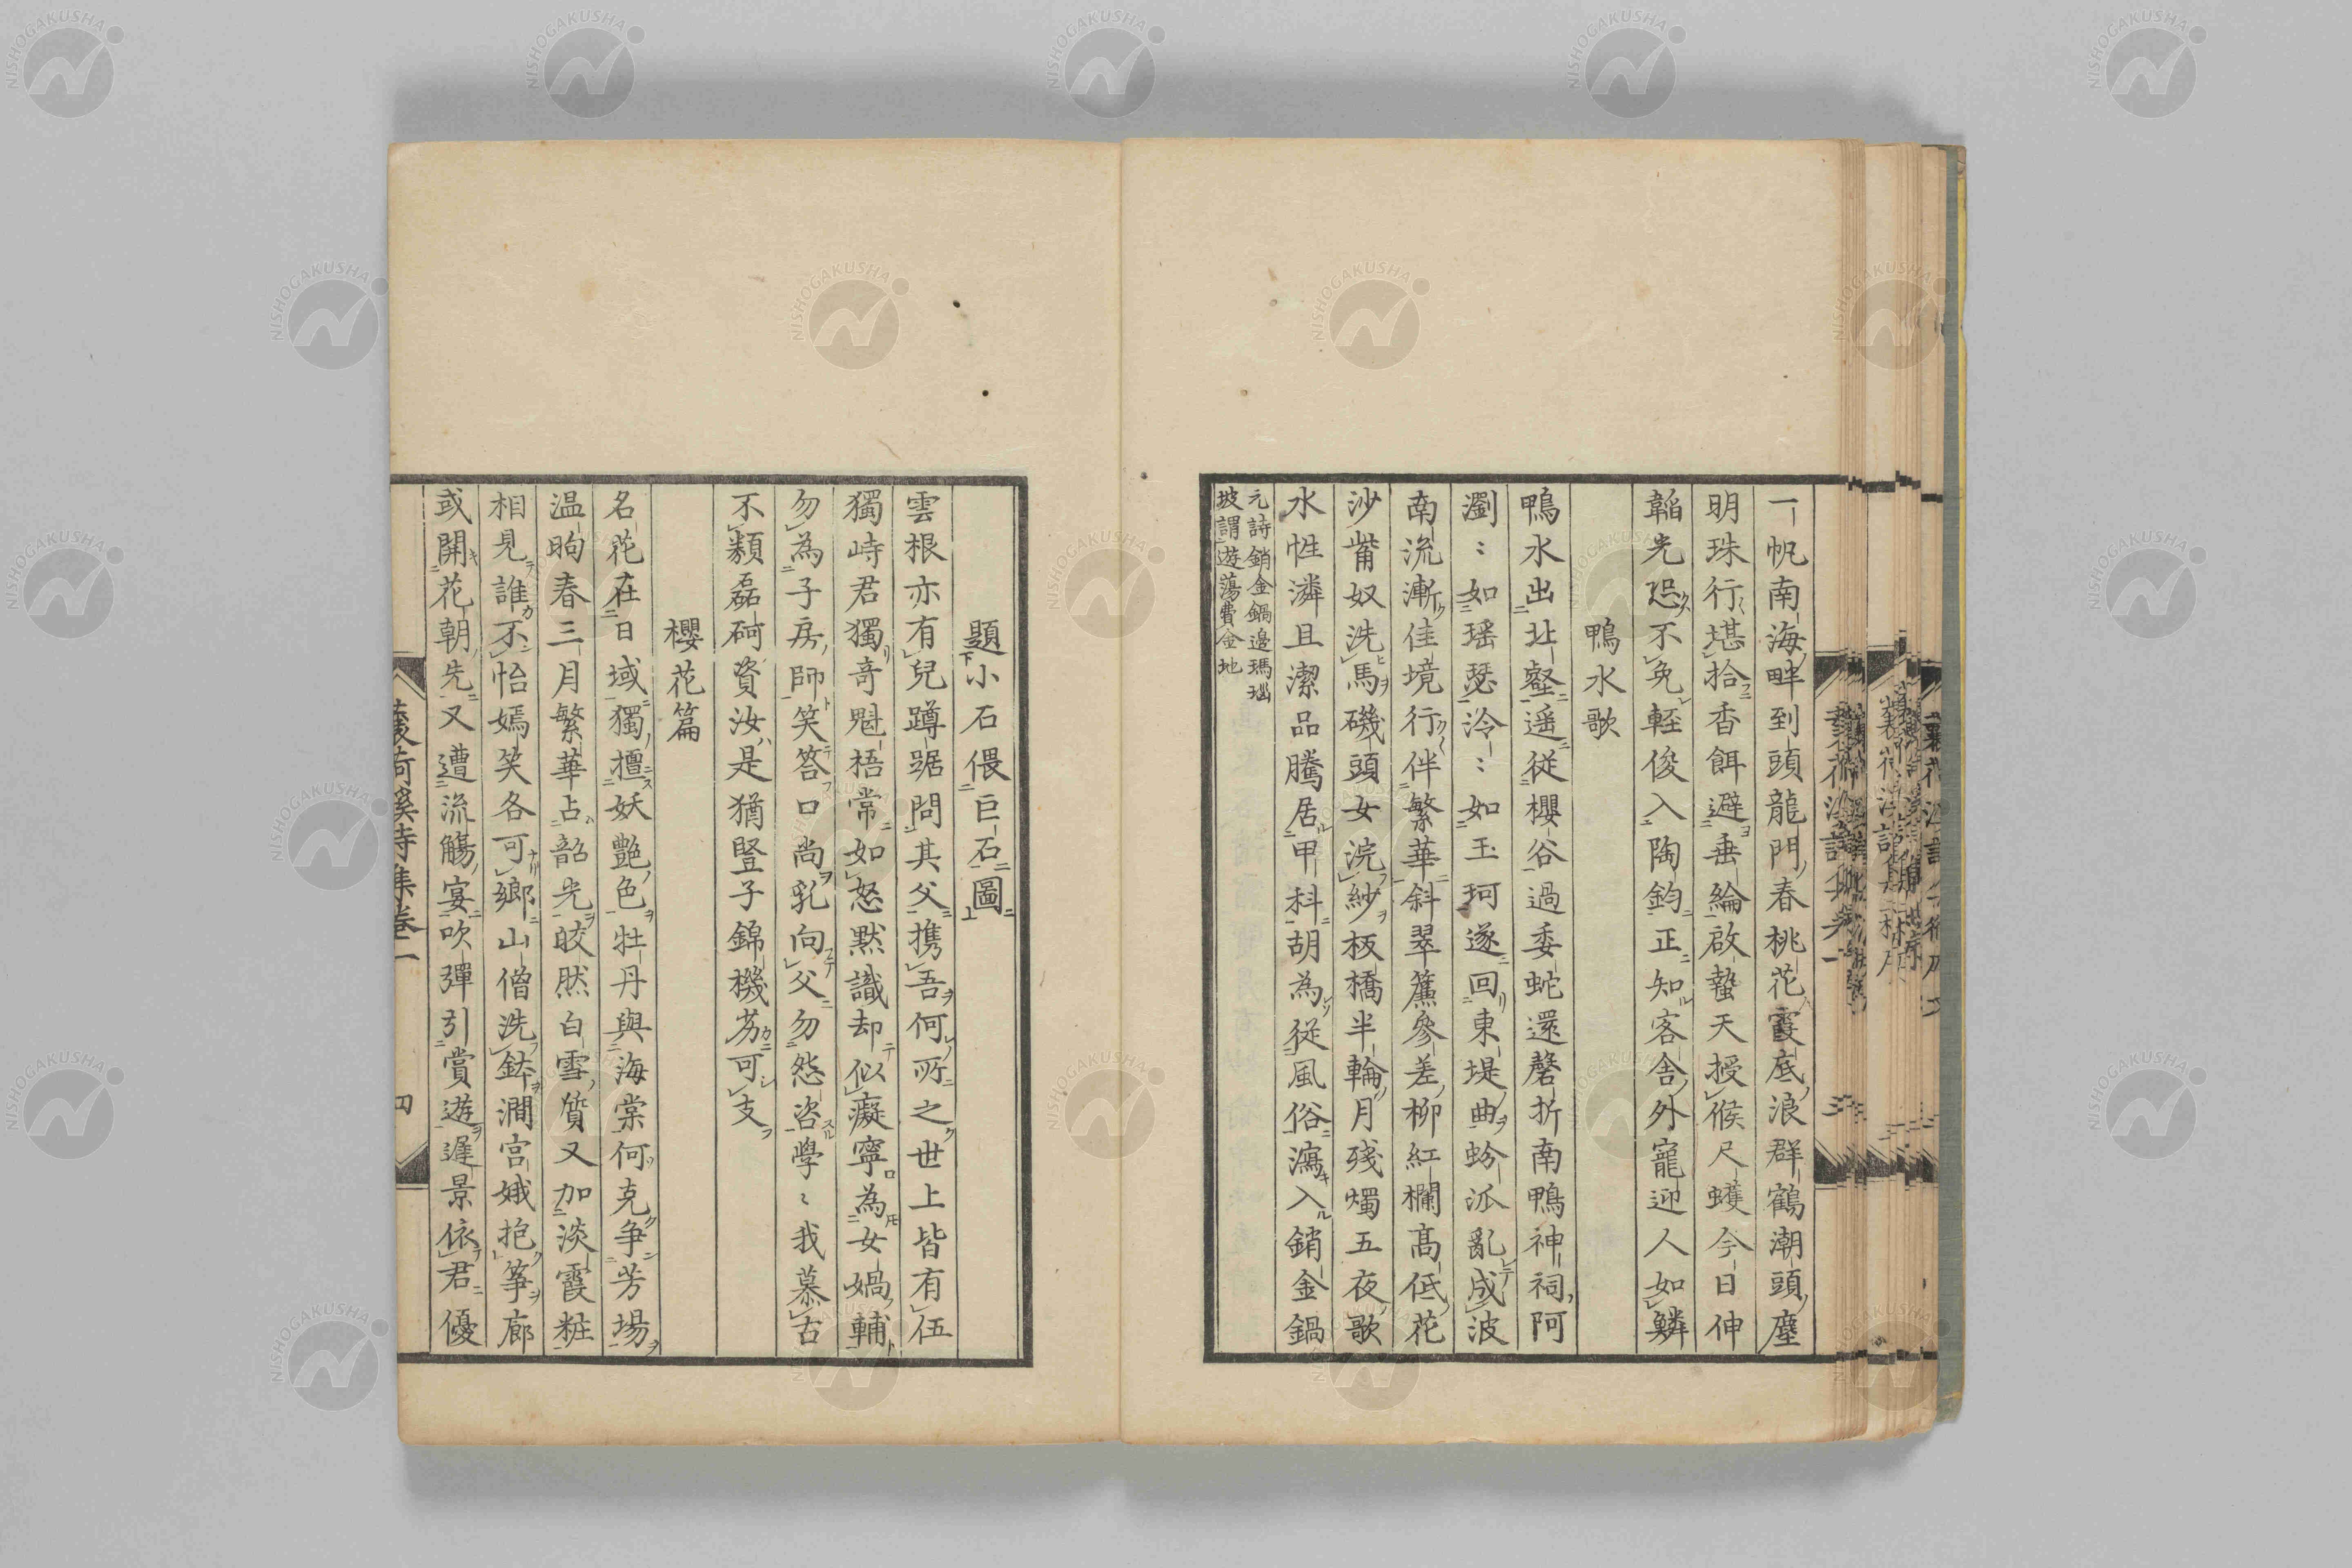 一帆南海畔到頭龍門春桃花霞底浪群鶴潮頭塵
明珠行堪拾香餌避垂綸啟蟄天授候尺蠖今日伸
韜光恐不免輕俊入陶鈞正知客舎外寵迎人如鱗
鴨水歌
鴨水出北壑遥從櫻谷過委蛇還磬折南鴨神祠阿
瀏〻如瑶瑟泠〻如玉珂遂回東堤曲蚧泒亂成波
南流漸佳境行伴繁華斜翠簾參差柳紅欄髙低花
沙觜奴洗馬磯頭女浣紗板橋半輪月殘燭五夜歌
水性潾且潔品騰居甲科胡為從風俗瀉入銷金鍋
元詩銷金鍋邊瑪瑙
坡謂遊蕩費金地
題小石偎巨石圖
雲根亦有兒蹲踞問其父携吾何所之世上皆有伍
獨峙君獨奇魁梧常如怒黙識却似癡寧為女媧輔
勿為子房師笑答口尚乳向父勿怨咨學〻我慕古
不類磊砢資汝是猶豎子錦機芴可支
櫻花篇
名花在日域獨擅妖艶色牡丹與海棠何克争芳場
温昫春三月繁華占韶光皎然白雪質又加淡霞粧
相見誰不怡嫣笑各可郷山僧洗鉢澗宫娥抱筝廊
或開花朝先又遭流觴宴吹彈引賞遊遅景依君優
荷溪詩集巻二
四
NISHOGAKUSHA